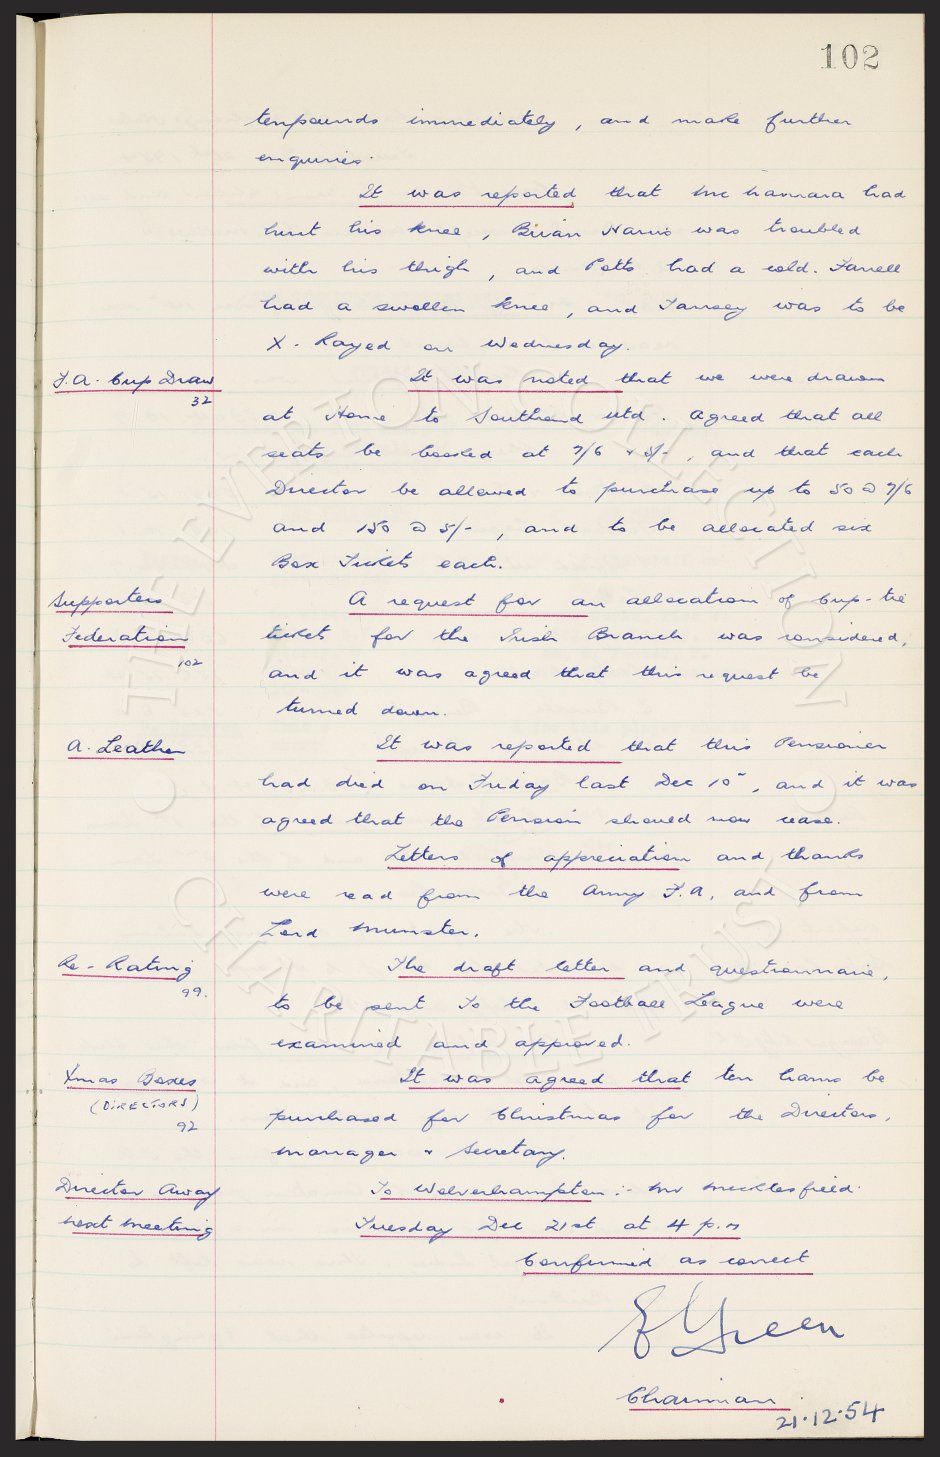 102
tenpounds immediately, and make further
enquiries.
It was reported that McNamara had
hurt his knee, Brian Harris was troubled
with his thigh, and Potts had a cold. Farrell
had a swollen knee, and Tansey was to be
X-Rayed on Wednesday.
F.A. Cup Draw
32
It was noted that we were drawn
at Home to Southend Utd. Agreed that all
seats be booked at 7/6 & 5/-, and that each
Director be allowed to purchase up to 50 @ 7/6
and 150 @ 5/-, and to be allocated six
Box Tickets each.
Supporters
Federation
102
A request for an allocation of Cup-tie
tickets for the Irish Branch was considered,
and it was agreed that this request be
turned down.
A. Leather
It was reported that this Pensioner
had died on Friday last Dec 10", and it was
agreed that the Pension should now cease.
Letters of appreciation and thanks
were read from the Army F.A. and from
Lord Munster.
Re-Rating
99.
The draft letter and questionnaire,
to be sent to the Football League were
examined and approved.
Xmas Boxes
(DIRECTORS)
92
It was agreed that ten hams be
purchased for Christmas for the Directors,
Manager & Secretary.
Director Away
To Wolverhampton :- Mr Micklesfield.
Next Meeting
Tuesday Dec 21st at 4 p.m
Confirmed as correct
E Green
Chairman
21.12.54
THE EVERTON COLLECTION
CHARITABLE TRUST